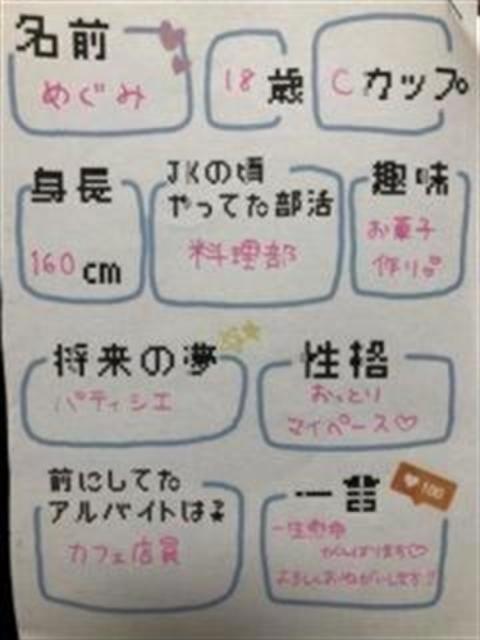 名前
めぐみ
18歳
Cカップ
身長
160cm
JKの頃
やってた部活
料理部
趣味
お菓子
作り
将来の夢
パティシエ
性格
おっとり
マイペース♡
前にしてた
アルバイトは?
カフェ店員
一言
♥100
一生懸命
がんばります♡
よろしくおねがいします!!